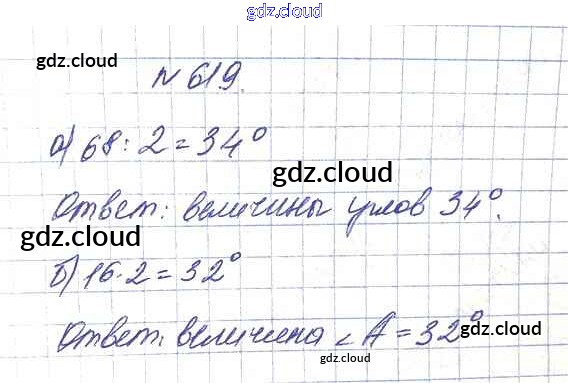 gdz.cloud
gdz.cloud
gdz.cloud
N 619.
а) 68 : 2 = 34°
gdz.cloud
Ответ: величины углов 34°.
gdz.cloud
б) 16 · 2 = 32°
Ответ: величина ∠ A = 32°
gdz.cloud
gdz.cloud